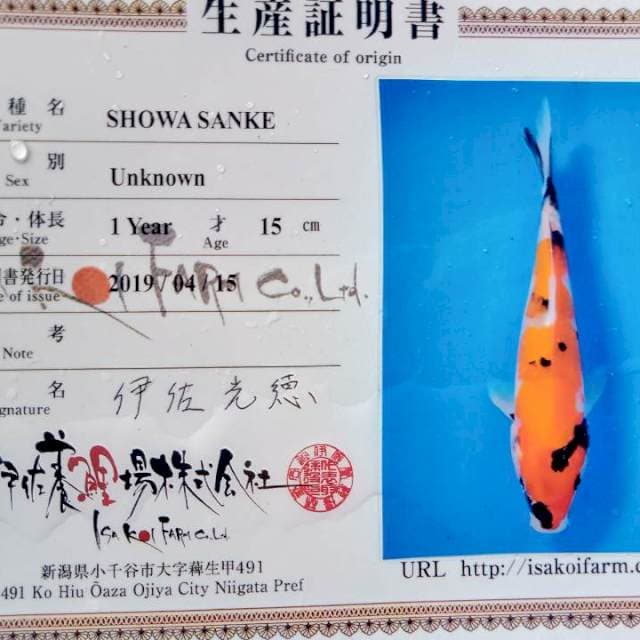 生産証明書
Certificate of origin
種 名
Variety
SHOWA SANKE
別
Sex
Unknown
・体長
ge・Size
1 Year
才
Age
15 cm
書発行日
e of issue
2019 / 04 / 15
KOI FARM Co., Ltd.
考
Note
名
gnature
伊佐光徳
伊佐養鯉場株式会社
ISA KOI FARM Co. Ltd.
新潟県小千谷市大字薭生甲491
491 Ko Hiu Ōaza Ojiya City Niigata Pref
URL http://isakoifarm.c